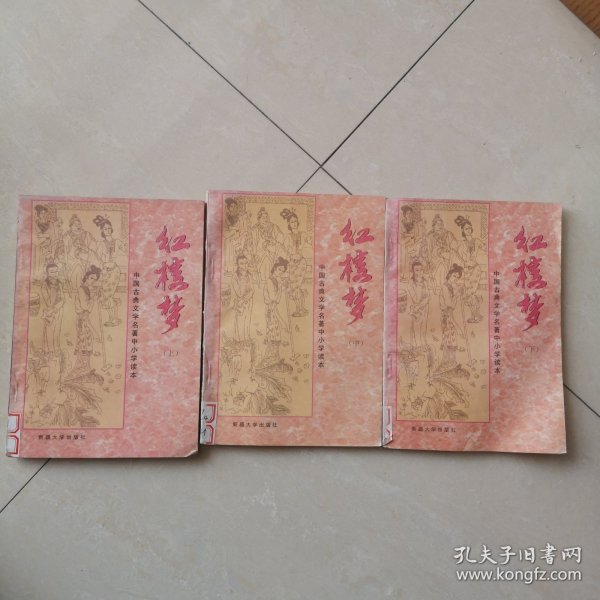 红楼梦
（上）
中国古典文学名著中小学读本
新疆大学出版社
红楼梦
（中）
中国古典文学名著中小学读本
新疆大学出版社
红楼梦
（下）
中国古典文学名著中小学读本
新疆大学出版社
孔夫子旧书网
www.kongfz.com